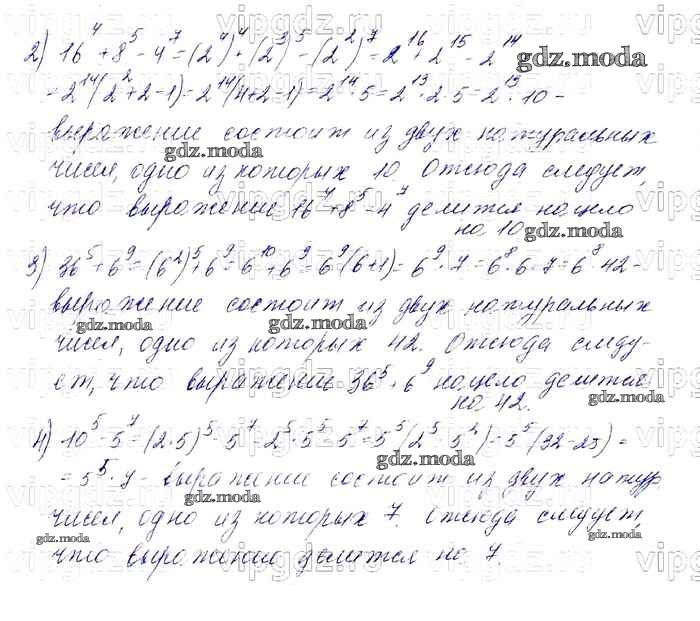 2) 16⁴ + 8⁵ - 4⁷ = (2⁴)⁴ + (2³)⁵ - (2²)⁷ = 2¹⁶ + 2¹⁵ - 2¹⁴
= 2¹⁴(2² + 2 - 1) = 2¹⁴(4 + 2 - 1) = 2¹⁴ · 5 = 2¹³ · 2 · 5 = 2¹³ · 10 -
выражение состоит из двух натуральных
чисел, одно из которых 10. Отсюда следует,
что выражение 16⁴ + 8⁵ - 4⁷ делится нацело
на 10
3) 36⁵ + 6⁹ = (6²)⁵ + 6⁹ = 6¹⁰ + 6⁹ = 6⁹(6+1) = 6⁹ · 7 = 6⁸ · 6 · 7 = 6⁸ · 42 -
выражение состоит из двух натуральных
чисел, одно из которых 42. Отсюда следу-
ет, что выражение 36⁵ + 6⁹ нацело делится
на 42.
4) 10⁵ - 5⁷ = (2·5)⁵ - 5⁷ = 2⁵ · 5⁵ - 5⁷ = 5⁵(2⁵ - 5²) = 5⁵(32 - 25) =
= 5⁵ · 7 - выражение состоит из двух натур
чисел, одно из которых 7. Отсюда следует,
что выражение делится на 7.
vipgdz.ru
gdz.moda